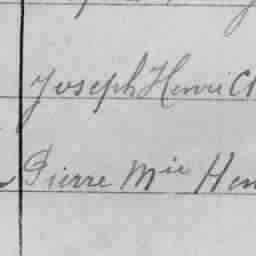 Joseph Henri
Pierre Mie Hen